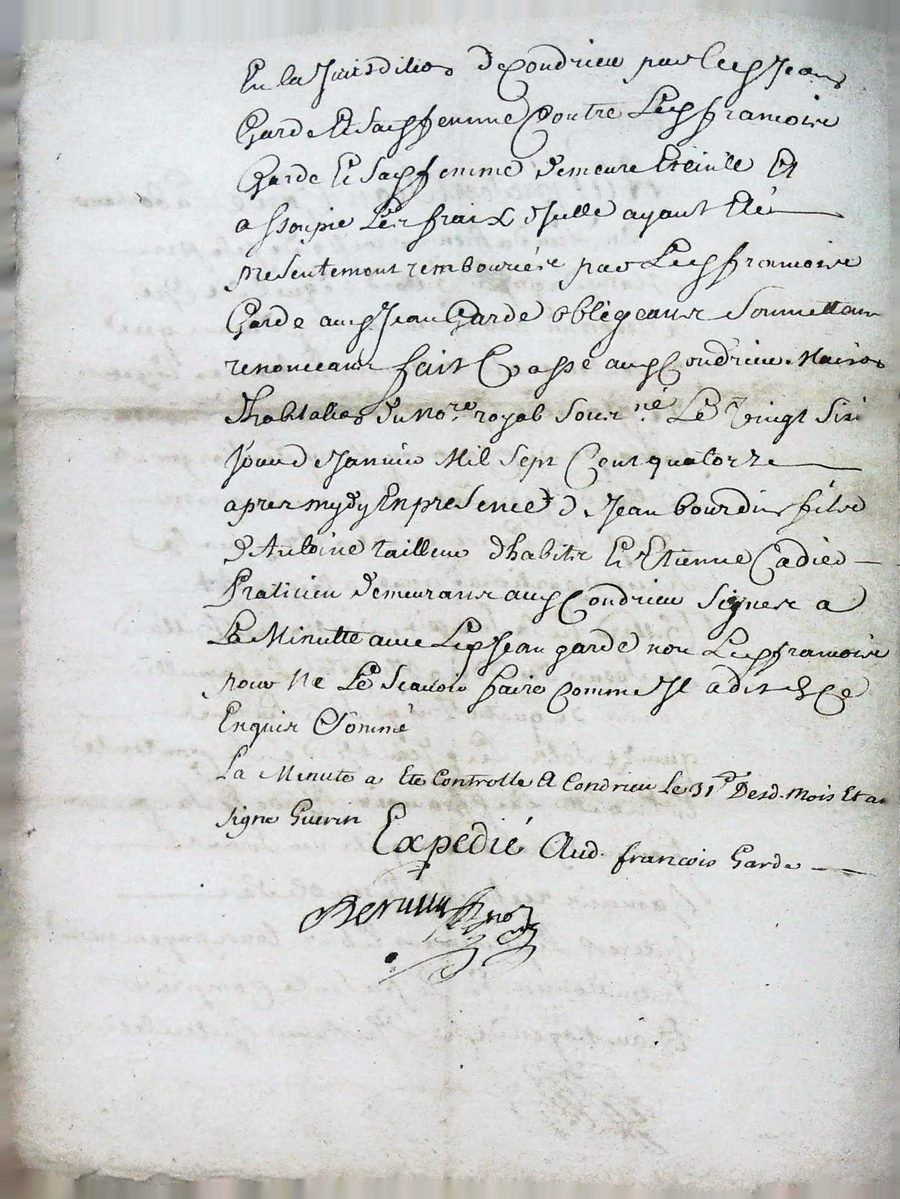 En la Jurisdiction de Condrieu par led Jean
Garde Et sad femme Contre Led francois
Garde Et Sad femme demeure Eteinte Et
assoupie Les fraix d'Icelle ayant Eté
presentement rembourcés par Led francois
Garde aud Jean Garde obligeans Soumettans
renonceans fait & passé aud Condrieu Maison
d'habitation du No.re royal Sous.né Le vingt Six
Jour de Janvier Mil Sept Cent quatorze
apres mydy En presence de Jean bourdin fils
d'Antoine tailleur d'habits Et Etienne Cadier
Praticien demeurans aud Condrieu Signes a
La Minutte avec Led Jean garde non Led francois
pour Ne Le Scavoir faire Comme Il a dit de Ce
Enquis & Sommé
La Minute a Eté Controllé A Condrieu Le 31e Desd. Mois Et an
Signé Guerin
Expedié Aud. francois Garde